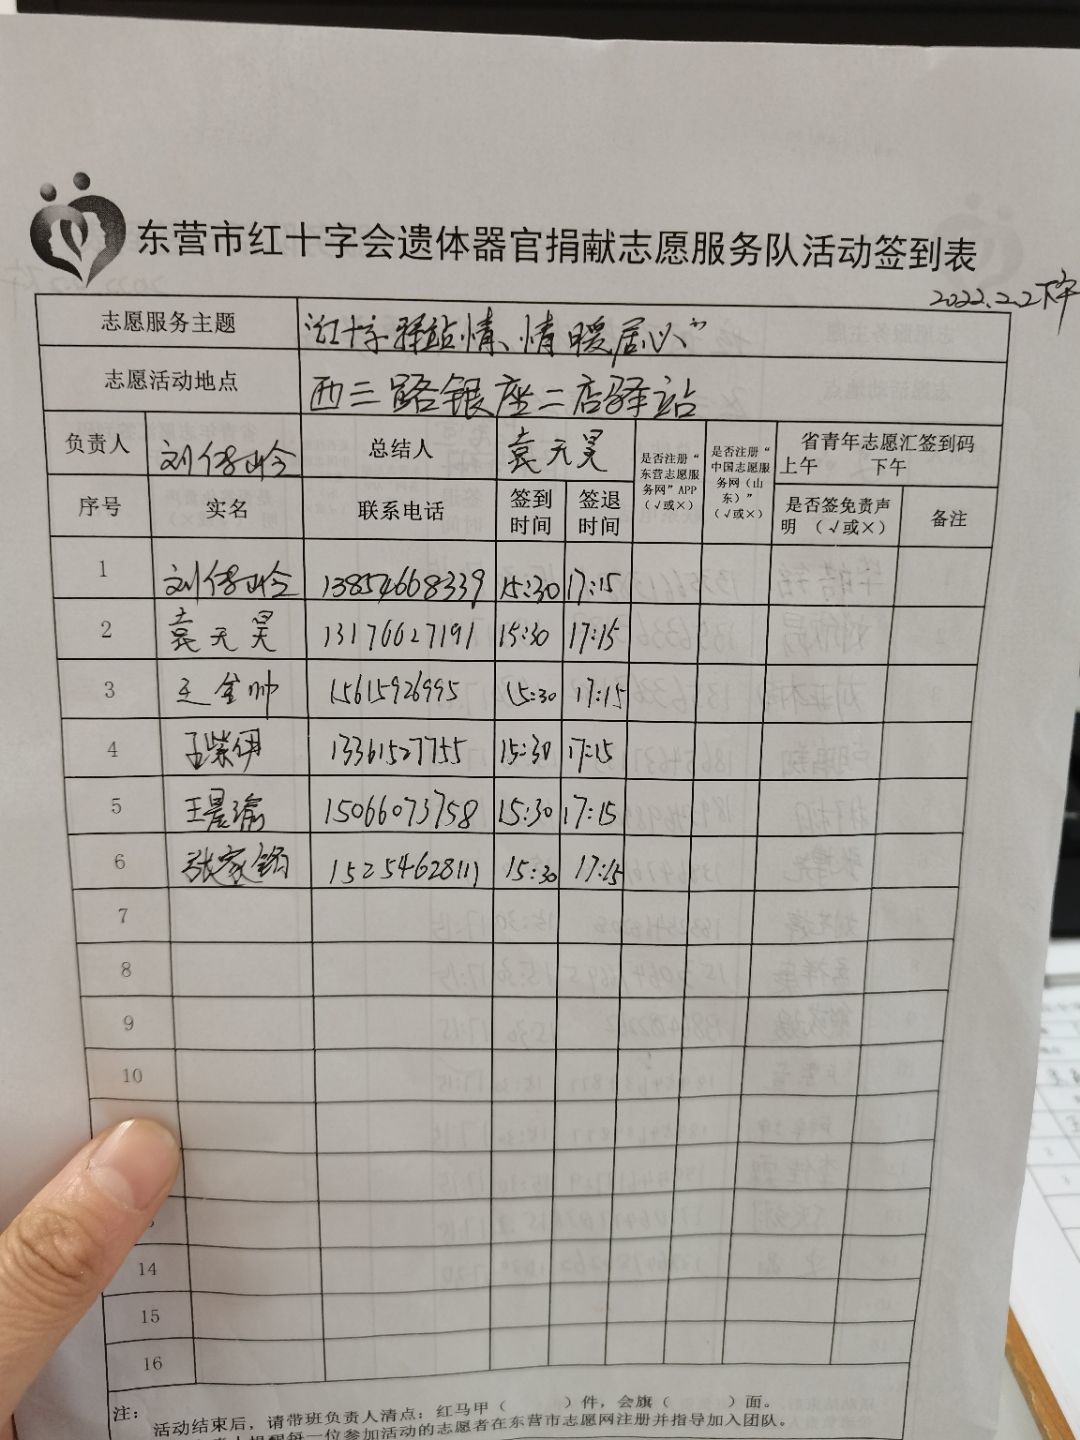 东营市红十字会遗体器官捐献志愿服务队活动签到表
2022.2.2下午
志愿服务主题 "红十字驿站情、情暖居心"
志愿活动地点 西三路银座二店驿站
负责人 总结人 袁天昊 是否注册"东营志愿服务网"APP（√或×） 是否注册"中国志愿服务网（山东）"（√或×） 省青年志愿汇签到码 上午 下午
序号 实名 联系电话 签到时间 签退时间 是否签免责声明（√或×） 备注
1 13854668339 15:30 17:15
2 袁天昊 13176627191 15:30 17:15
3 王金帅 15615926995 15:30 17:15
4 王紫伊 13361527755 15:30 17:15
5 王晨瑜 15066073758 15:30 17:15
6 张家铭 15254628111 15:30 17:15
7
8
9
10
14
15
16
注：
活动结束后，请带班负责人清点：红马甲（ ）件，会旗（ ）面。
每一位参加活动的志愿者在东营市志愿网注册并指导加入团队。